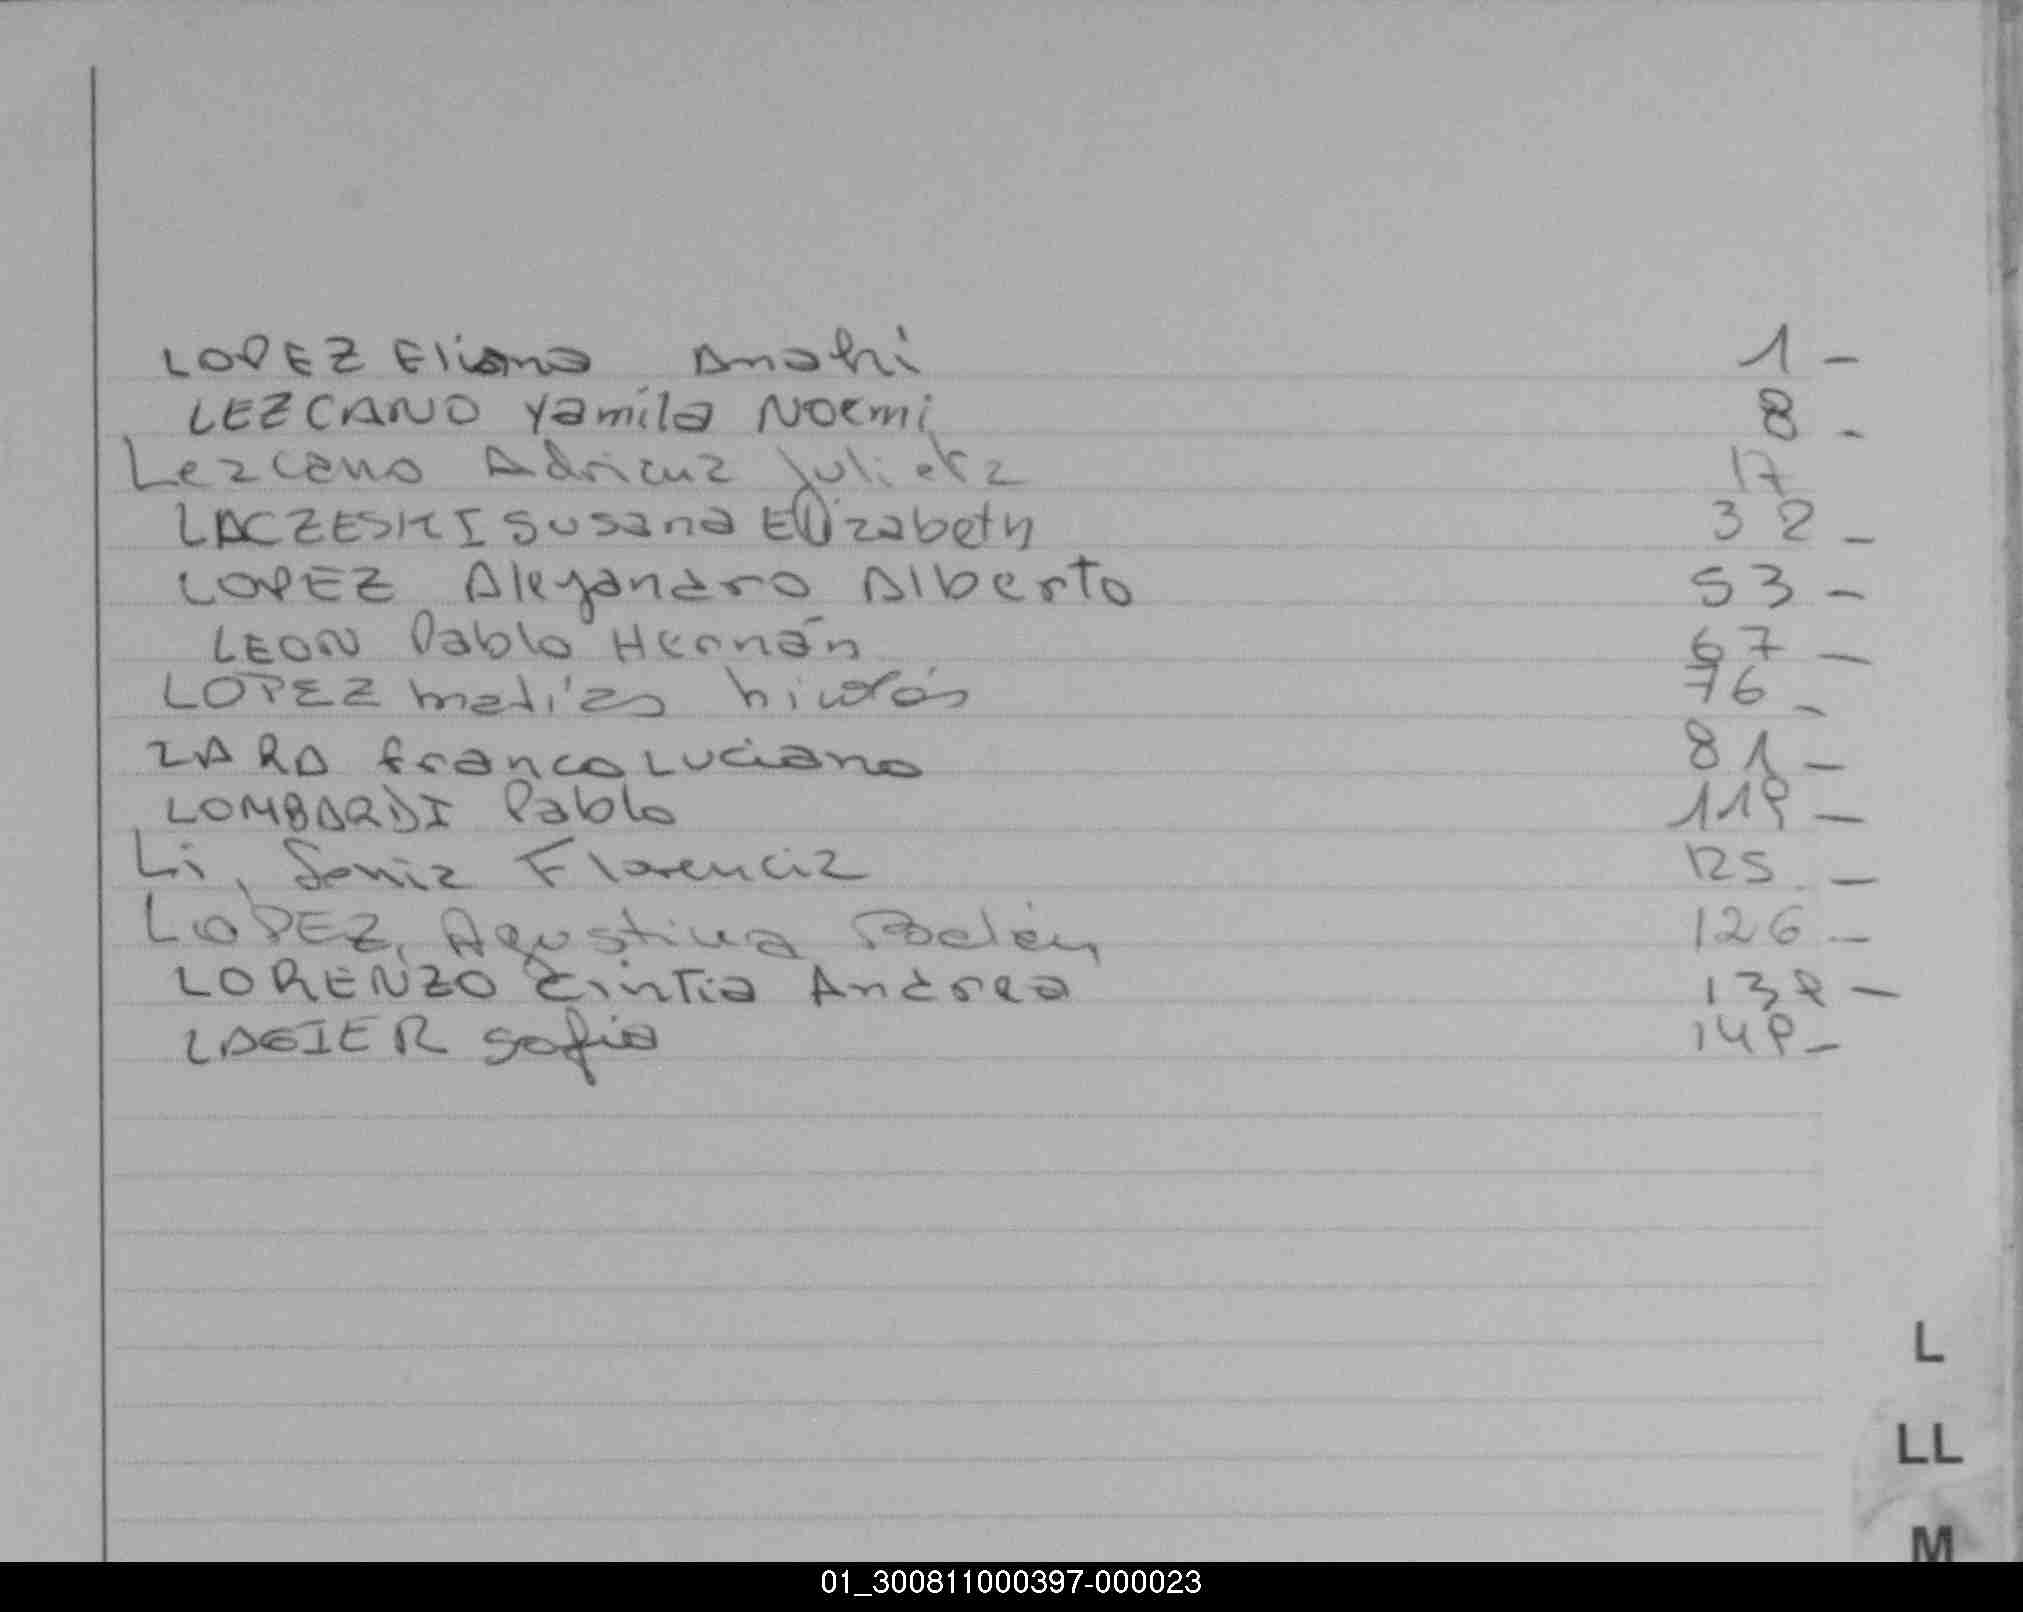 LOPEZ Eliana Anahi 1 -
LEZCANO Yamila Noemi 8 -
Lezcano Adriana Julieta 17
LACZESKI Susana Elizabeth 32 -
LOPEZ Alejandro Alberto 53 -
LEON Pablo Hernán 67 -
LOPEZ Matías Nicolás 76 -
LARA Franco Luciano 81 -
LOMBARDI Pablo 119 -
Li, Sonia Florencia 125 -
LOPEZ, Agustina Belén 126 -
LORENZO Cintia Andrea 139 -
LAGIER Sofia 149 -
L
LL
M
01_300811000397-000023